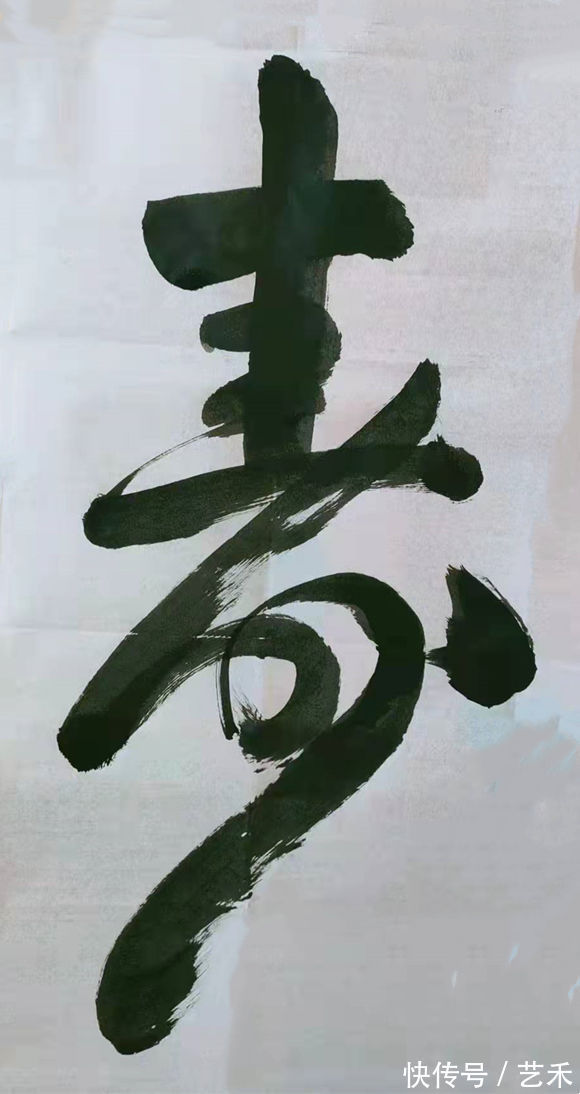 寿
快传号 / 艺禾